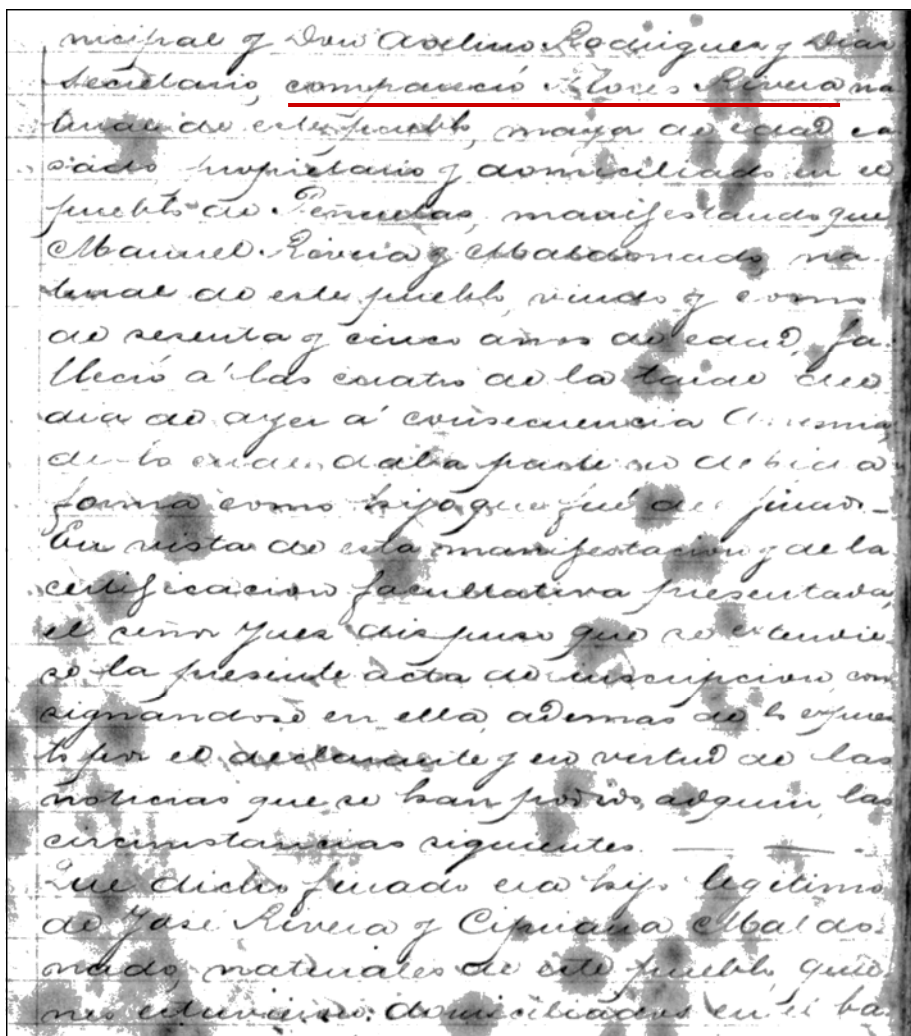 nicipal y Don Avelino Rodriguez y Diaz
Secretario, compareció Flores Rivera na
tural de este pueblo, mayor de edad ca
sado propietario y domiciliado en el
pueblo de Peñuelas, manifestando que
Manuel Rivera y Maldonado, na
tural de este pueblo, viudo y como
de sesenta y cinco años de edad, fa
lleció á las cuatro de la tarde del
dia de ayer á consecuencia
de lo cual daba parte en debida
forma como hijo que fué del finado.
En vista de esta manifestacion y de la
certificacion facultativa presentada,
el señor Juez dispuso que se estendie
se la presente acta de inscripcion, con
signandose en ella, además de lo espues
to por el declarante y en virtud de las
noticias que se han podido adquirir, las
circunstancias siguientes.
Que dicho finado era hijo legitimo
de José Rivera y Cipriana Maldo
nado, naturales de este pueblo, quie
nes estuvieron domiciliados en el ba